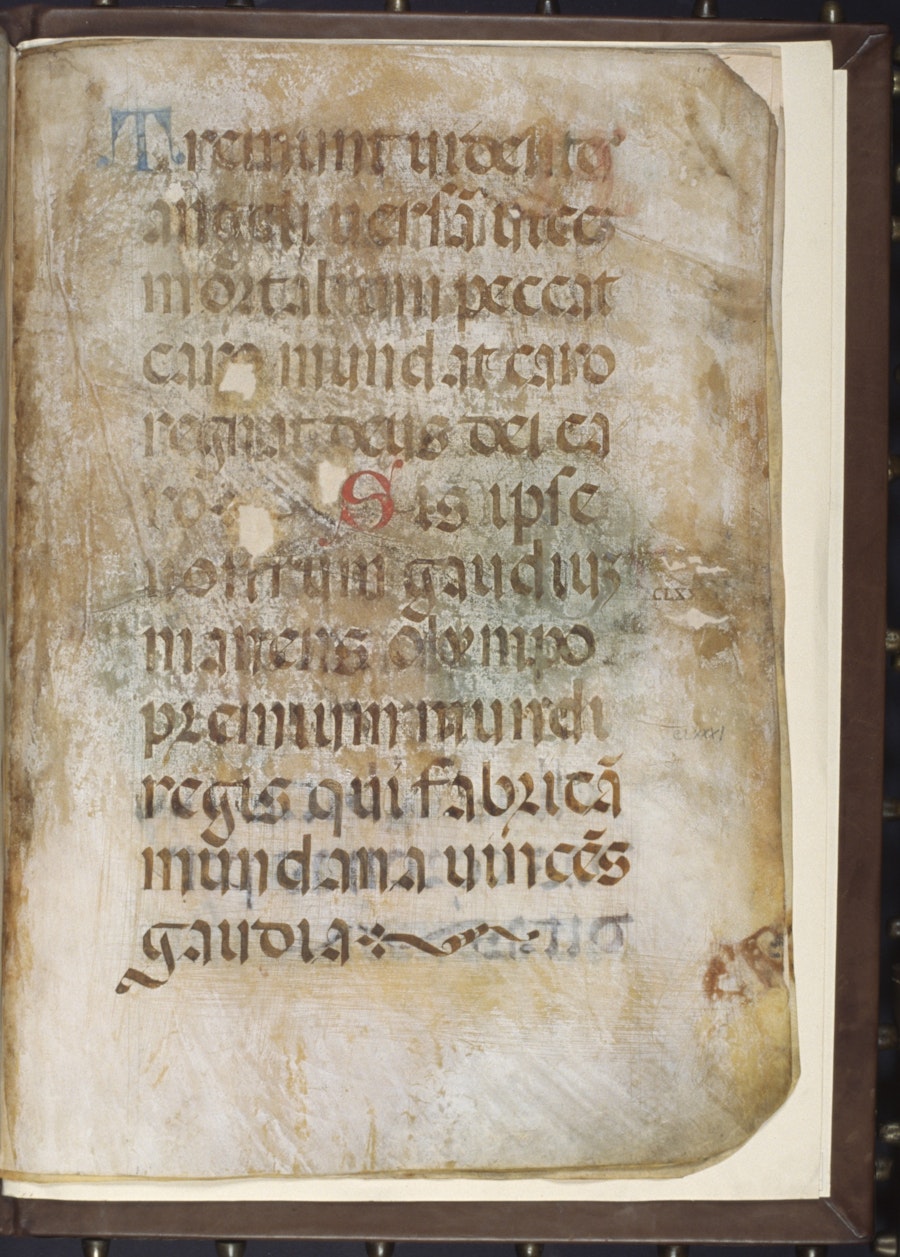 Tremunt videntes
angeli versã vices
mortalium peccat
caro mundat caro
regnat deus dei ca
ro. Sis ipse
nostrum gaudiuz
manens olympo
premium mundi
regis qui fabricã
mundana vincẽs
gaudia
CLXX